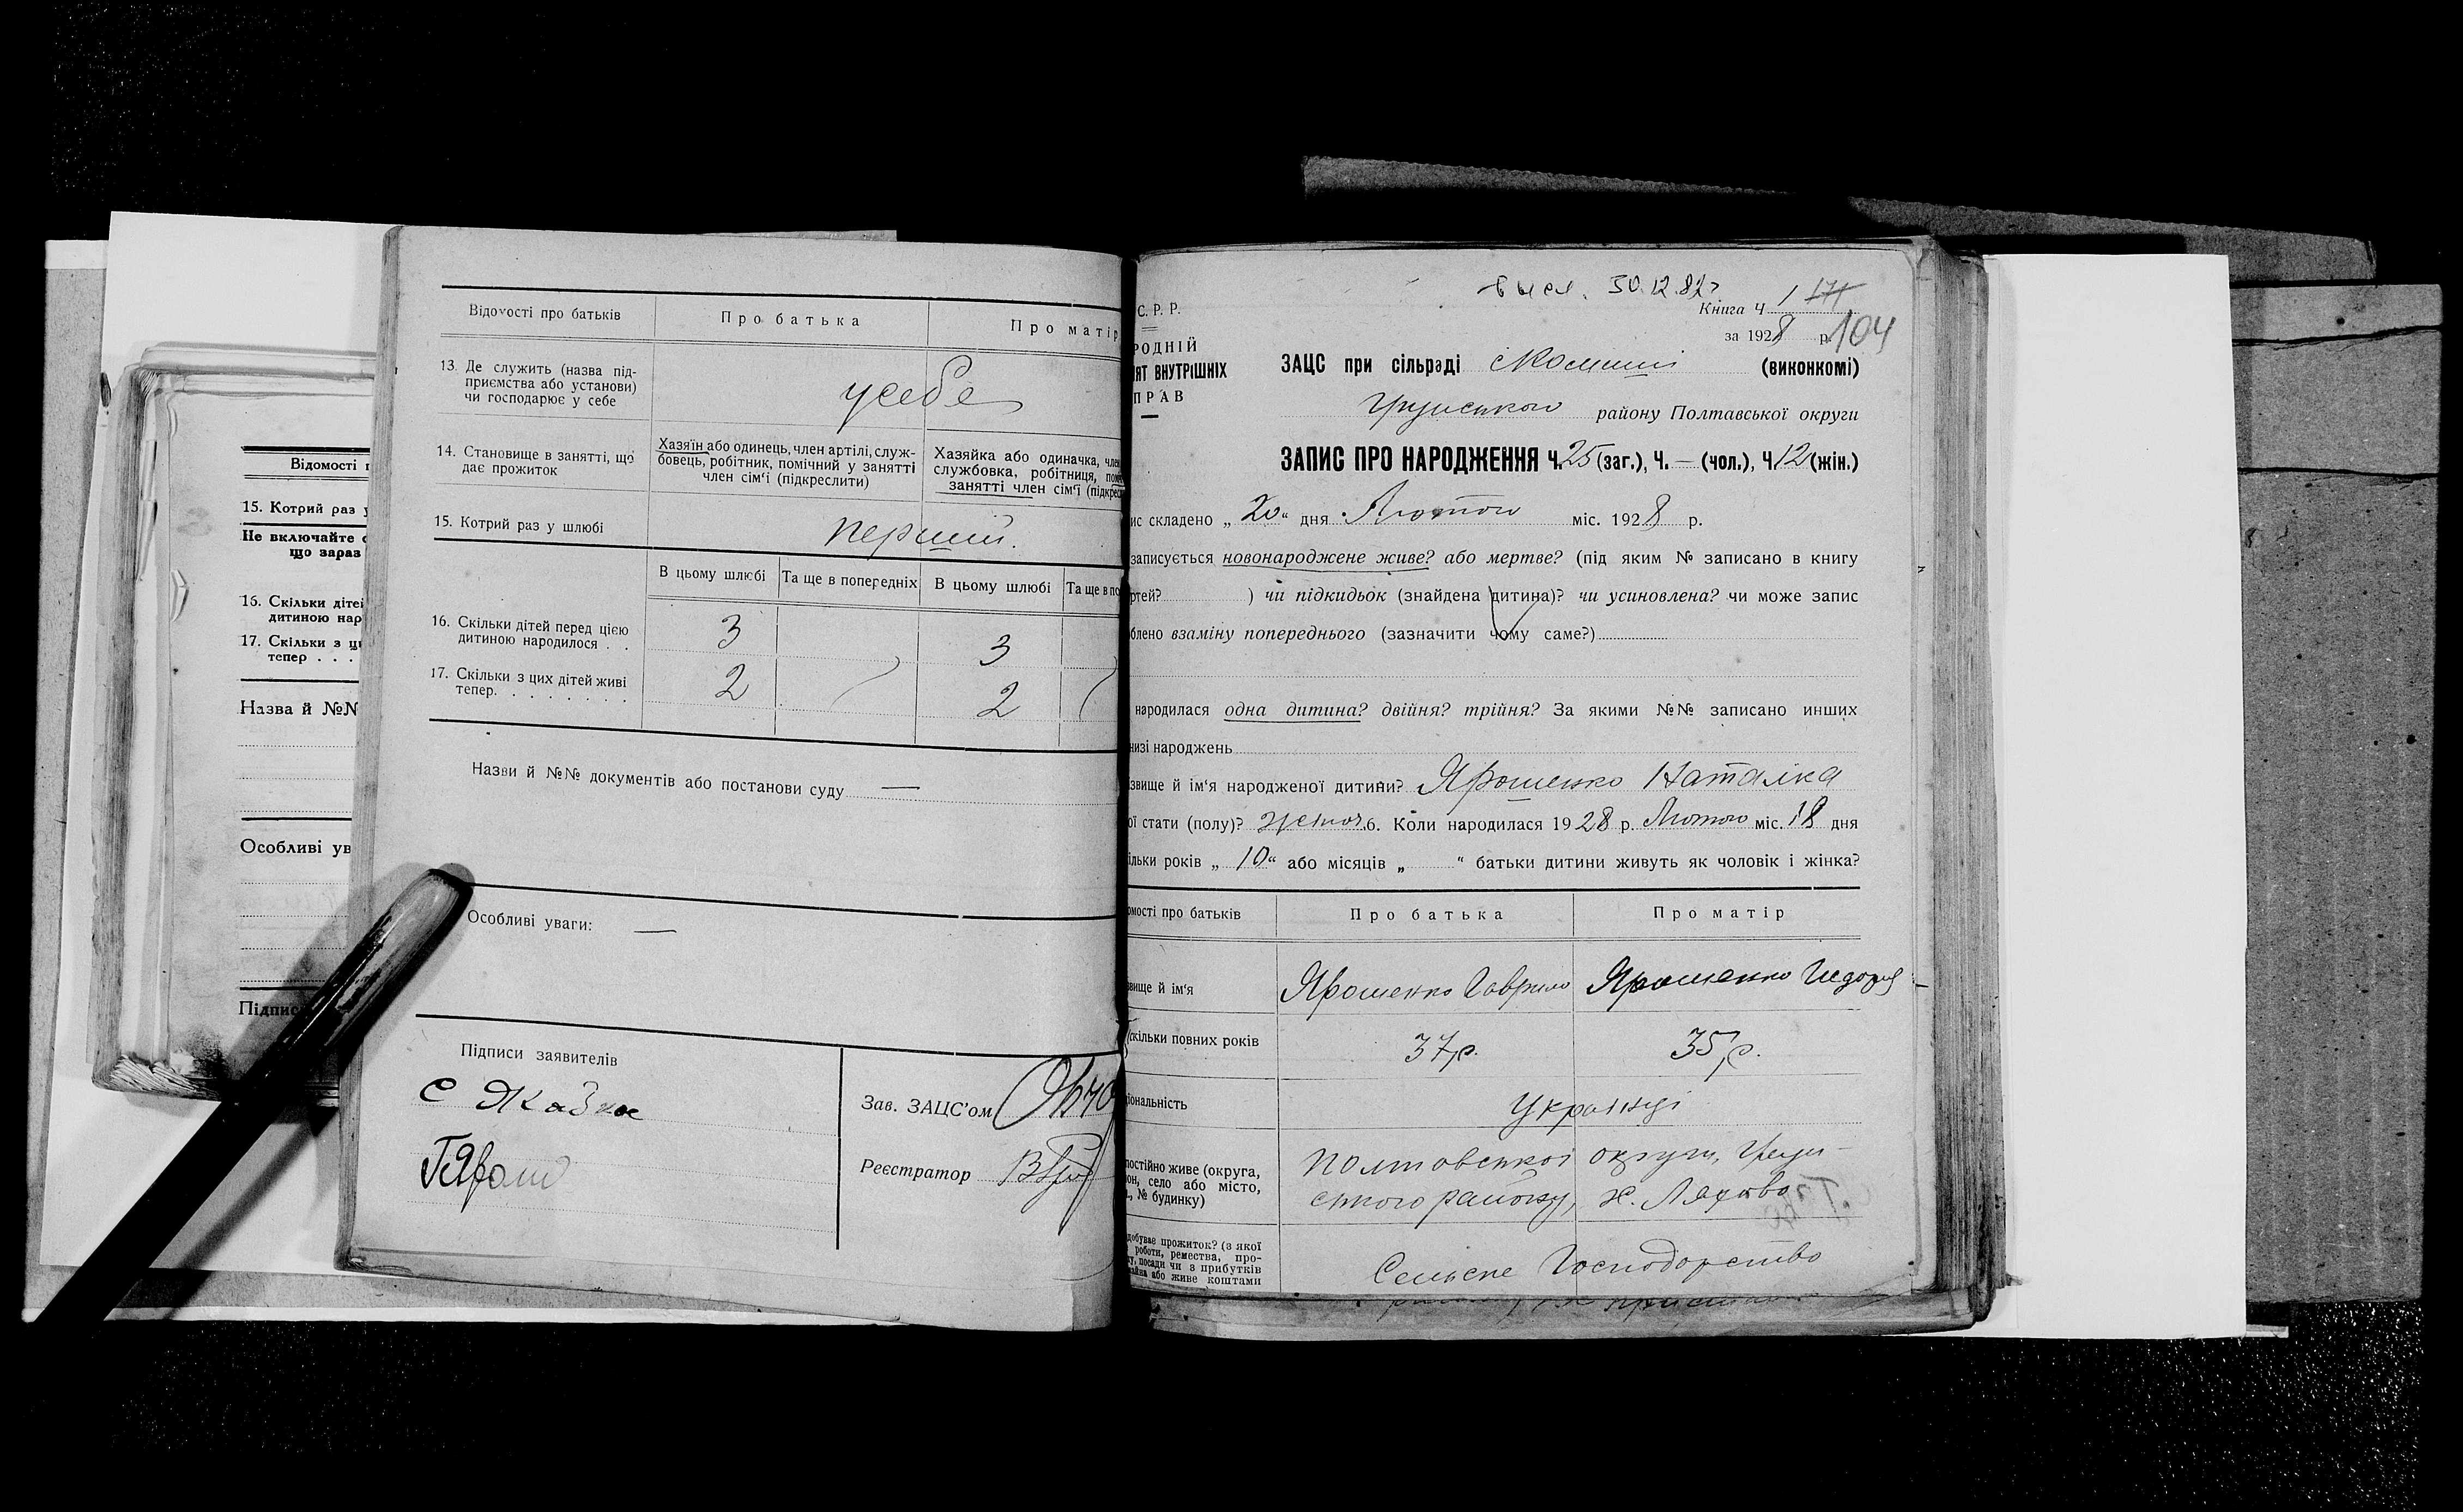 Відомості про батьків
Про батька
Про матір
13. Де служить (назва під-
приємства або установи)
чи господарює у себе
усебе
14. Становище в занятті, що
дає прожиток
Хазяїн або одинець, член артілі, служ-
бовець, робітник, помічний у занятті
член сім'ї (підкреслити)
Хазяйка або одиначка, член
службовка, робітниця, пом
занятті член сім'ї (підкрес
15. Котрий раз у шлюбі
перший.
В цьому шлюбі
Та ще в попередніх
В цьому шлюбі
Та ще в по
16. Скільки дітей перед цією
дитиною народилося . .
3
3
17. Скільки з цих дітей живі
тепер. . . . . . . .
2
2
Назви й №№ документів або постанови суду —
Особливі уваги: —
Підписи заявителів
Зав. ЗАЦС'ом
Реєстратор
Відомості п
15. Котрий раз у
Не включайте
що зараз
16. Скільки дітей
дитиною нар
17. Скільки з ци
тепер . . .
Назва й №№
Особливі ув
Підпис
30.12.82
С. Р. Р.
Книга Ч. 1 171
за 1928 р. 104
РОДНІЙ
ЯТ ВНУТРІШНІХ
ПРАВ
ЗАЦС при сільраді (виконкомі)
району Полтавської округи
ЗАПИС ПРО НАРОДЖЕННЯ Ч. 25 (заг.), Ч. — (чол.), Ч 12 (жін.)
ис складено „ 20 “ дня Лютого міс. 1928 р.
записується новонароджене живе? або мертве? (під яким № записано в книгу
ртей? ) чи підкидьок (знайдена дитина)? чи усиновлена? чи може запис
блено взаміну попереднього (зазначити чому саме?)
народилася одна дитина? двійня? трійня? За якими №№ записано инших
низі народжень
звище й ім'я народженої дитини? Ярошенко Наталка
ої стати (полу)? жіноч. 6. Коли народилася 1928 р. Лютого міс. 18 дня
ільки років „ 10 “ або місяців „ “ батьки дитини живуть як чоловік і жінка?
омості про батьків
Про батька
Про матір
вище й ім'я
Ярошенко Гаврило
Ярошенко
скільки повних років
37 р.
35 р.
іональність
Українці
постійно живе (округа,
он, село або місто,
., № будинку)
Полтавської округи,
ського району, х.
добуває прожиток? (з якої
роботи, ремества, про-
у, посади чи з прибутків
айна або живе коштами
Сельске Господарство